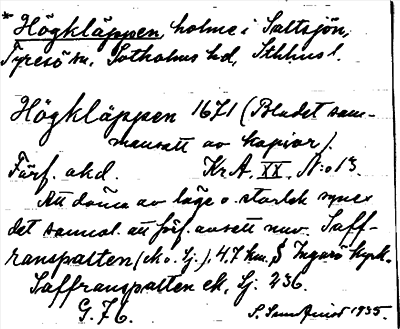 * Högkläppen, holme i Saltsjön,
Tyresö sn, Sotholms hd, Sthlms l.
Högkläppen 1671 (Bladet sam-
mansatt av kopior).
Förf. okd. Kr.A. XX. N:o 13.
Att döma av läge o. storlek synes
det sannol. att förf. avsett nuv. Saff-
ranspatten (ek o. Lj.), 4.7 km. S Ingarö kyrk.
Saffranspatten ek, Lj. 236.
G. 76. 1935.